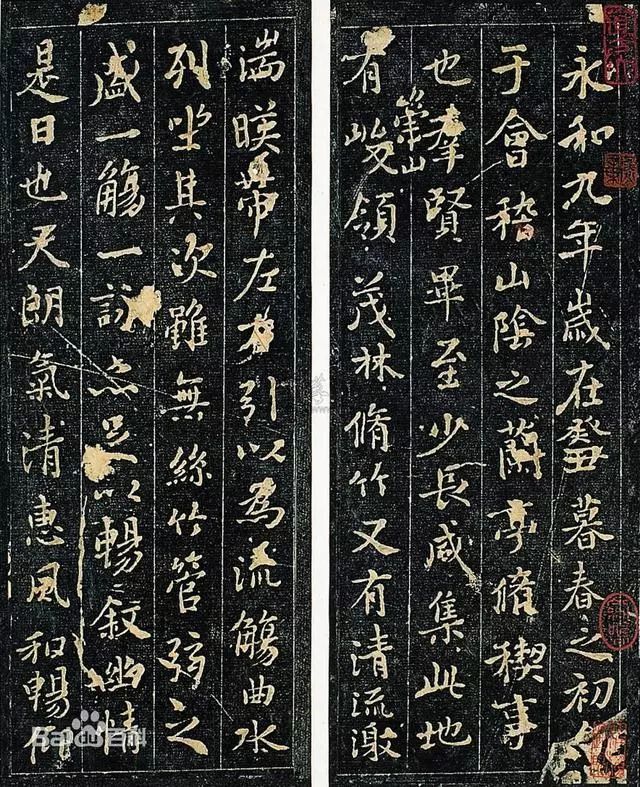 永和九年歲在癸丑暮春之初
于會稽山陰之蘭亭脩稧事
也羣賢畢至少長咸集此地
有崇山峻領茂林脩竹又有清流激
湍暎帶左右引以為流觴曲水
列坐其次雖無絲竹管弦之
盛一觴一詠亦足以暢敘幽情
是日也天朗氣清惠風和暢仰
Bai百科